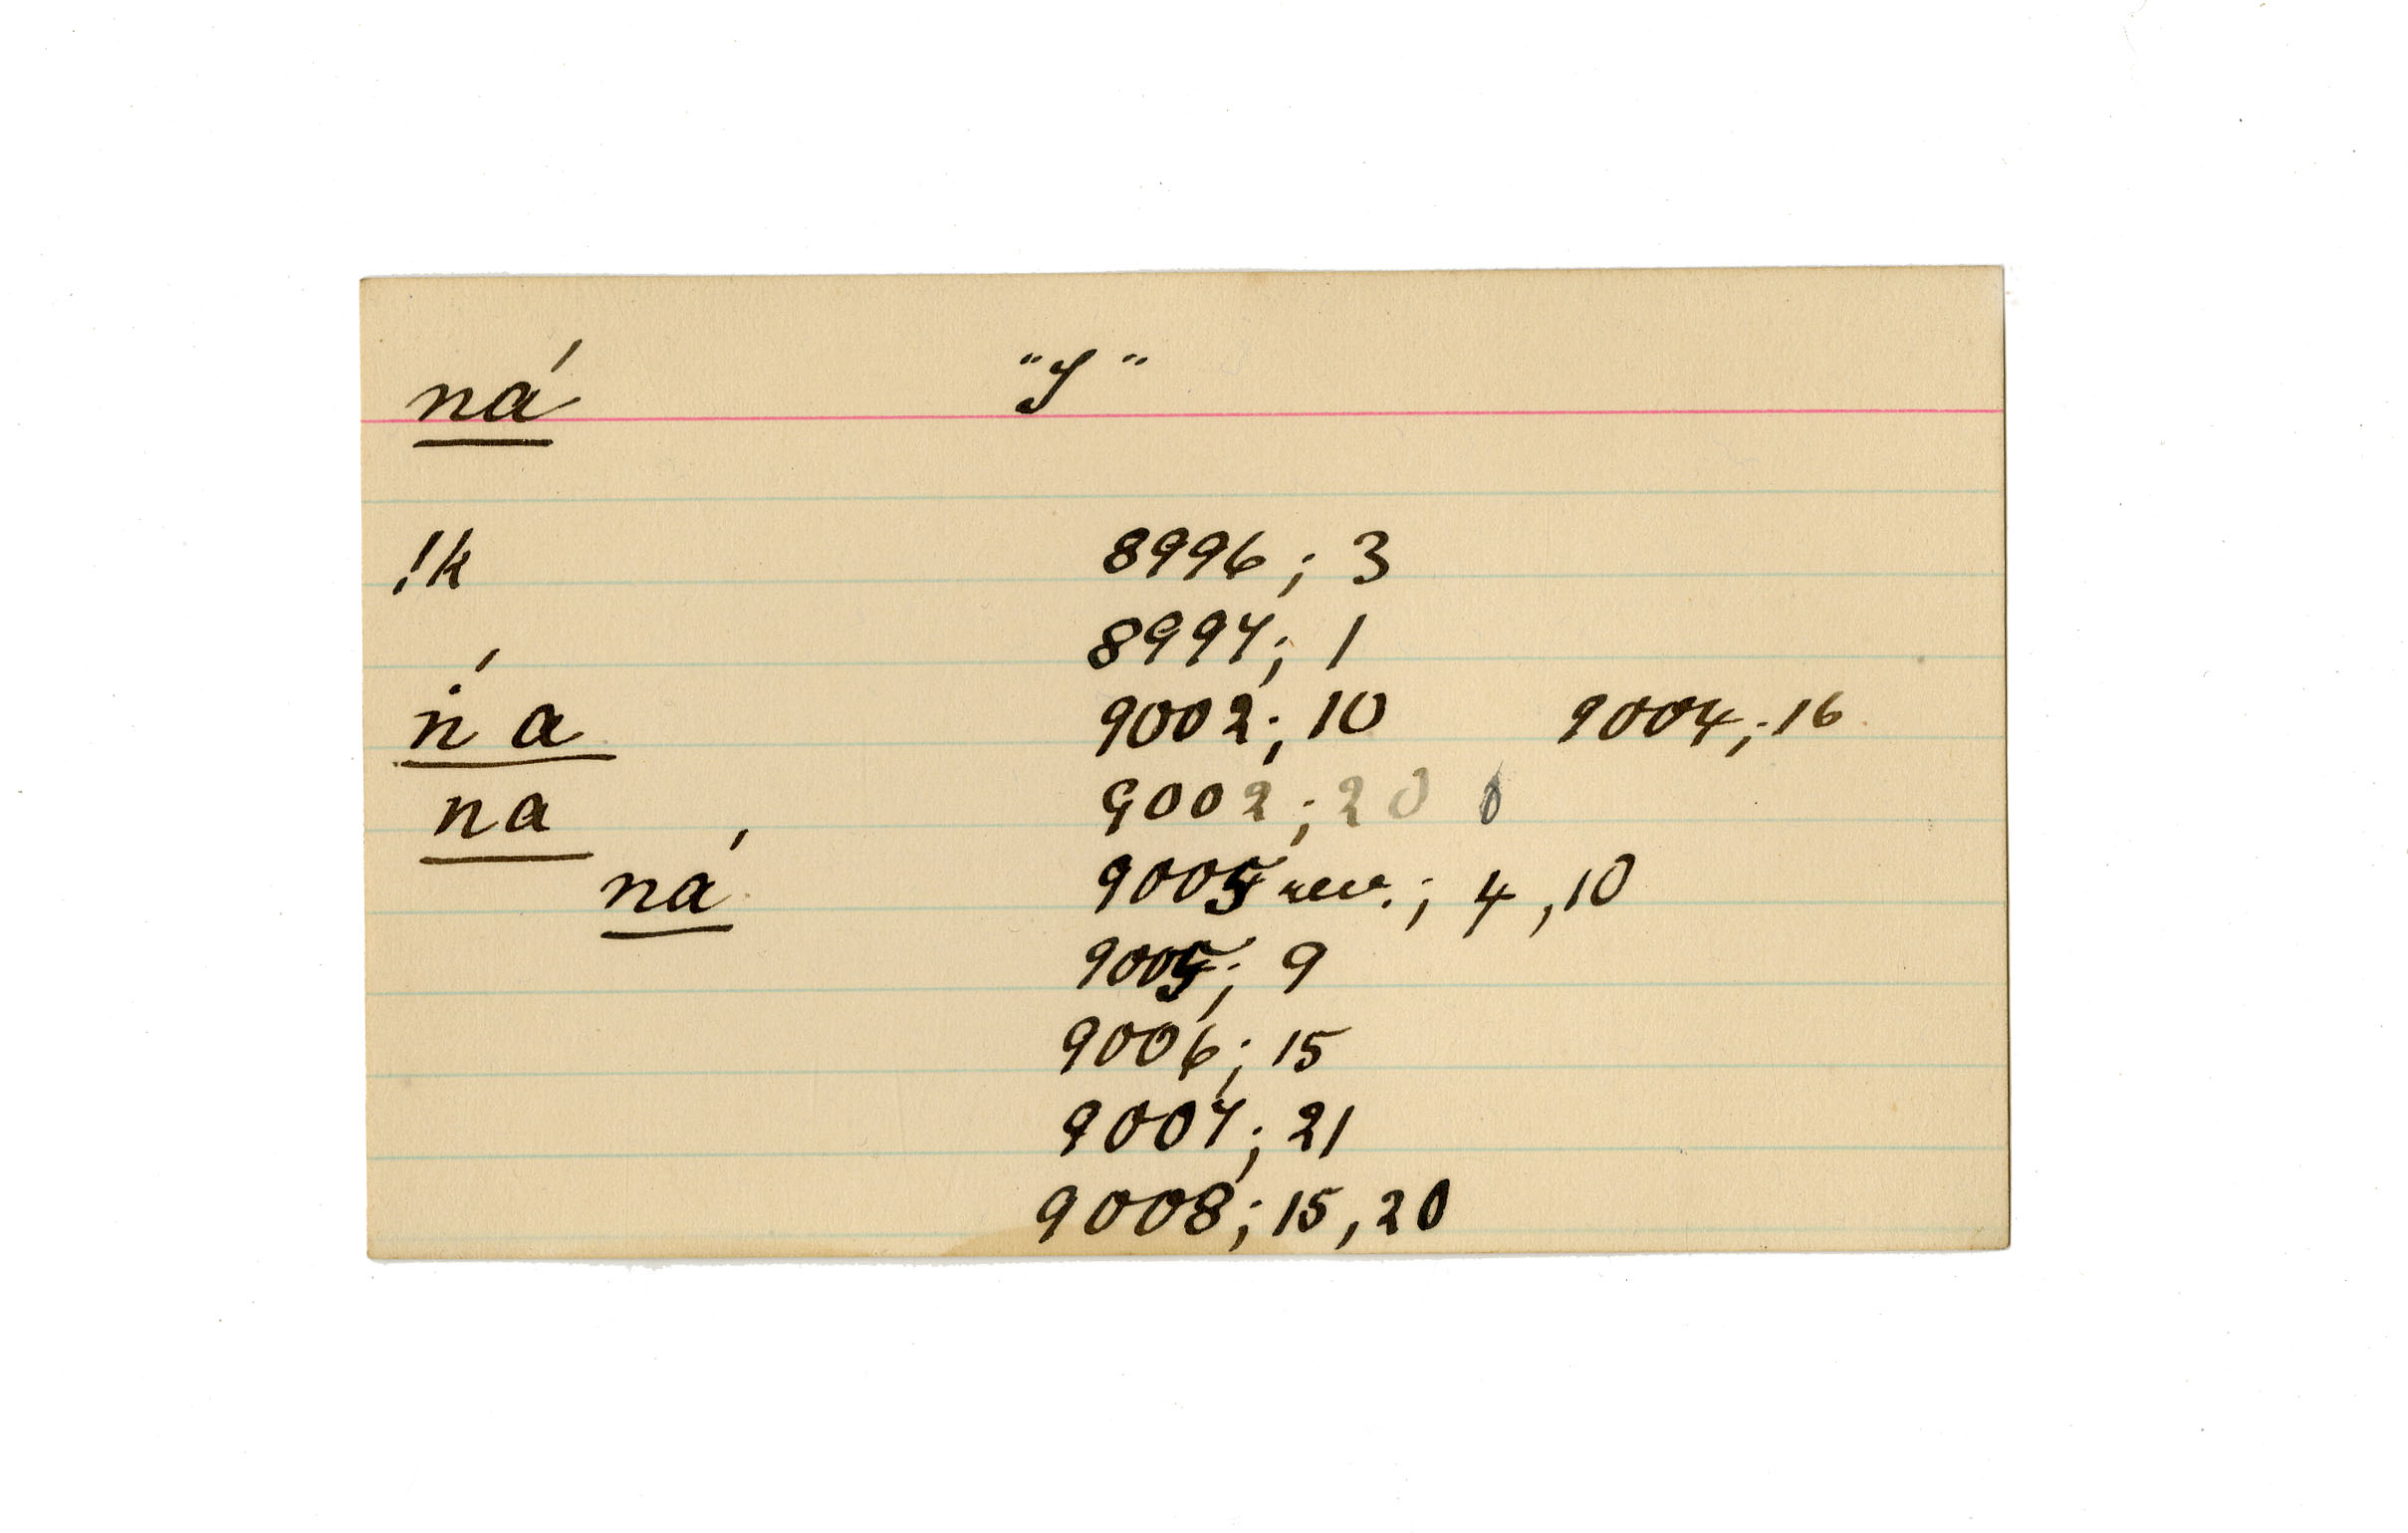 ná "I"
!k 8996; 3
8997; 1
ṅ á 9002; 10 9004; 16
na 9002; 20
ná 9005 rev.; 4, 10
9005; 9
9006; 15
9007; 21
9008; 15, 20